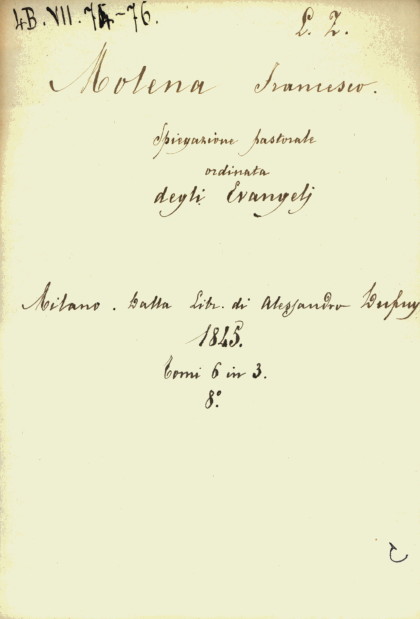 4B. VII. 74-76.
L. 2.
Molena Francesco.
Spiegazione pastorale
ordinata
degli Evangelj
Milano. Dalla Libr. di Alessandro Dupuy
1845.
Tomi 6 in 3.
8.°